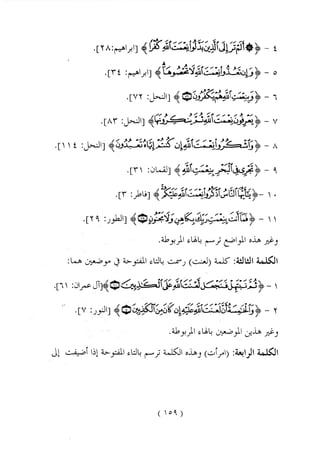 ٤ - ﴿ ۞ أَلَمْ تَرَ إِلَى الَّذِينَ بَدَّلُوا نِعْمَتَ اللَّهِ كُفْرًا ﴾ [إبراهيم: ٢٨].
٥ - ﴿ وَإِن تَعُدُّوا نِعْمَتَ اللَّهِ لَا تُحْصُوهَا ﴾ [إبراهيم: ٣٤].
٦ - ﴿ وَبِنِعْمَتِ اللَّهِ هُمْ يَكْفُرُونَ ﴾ [النحل: ٧٢].
٧ - ﴿ يَعْرِفُونَ نِعْمَتَ اللَّهِ ثُمَّ يُنكِرُونَهَا ﴾ [النحل: ٨٣].
٨ - ﴿ وَاشْكُرُوا نِعْمَتَ اللَّهِ إِن كُنتُمْ إِيَّاهُ تَعْبُدُونَ ﴾ [النحل: ١١٤].
٩ - ﴿ تَجْرِي فِي الْبَحْرِ بِنِعْمَتِ اللَّهِ ﴾ [لقمان: ٣١].
١٠ - ﴿ يَا أَيُّهَا النَّاسُ اذْكُرُوا نِعْمَتَ اللَّهِ عَلَيْكُمْ ﴾ [فاطر: ٣].
١١ - ﴿ فَمَا أَنتَ بِنِعْمَتِ رَبِّكَ بِكَاهِنٍ وَلَا مَجْنُونٍ ﴾ [الطور: ٢٩].
وغير هذه المواضع رسم بالهاء المربوطة.
الكلمة الثالثة: كلمة (لعنت) رسمت بالتاء المفتوحة في موضعين هما:
١ - ﴿ ثُمَّ نَبْتَهِلْ فَنَجْعَل لَّعْنَتَ اللَّهِ عَلَى الْكَاذِبِينَ ﴾ [آل عمران: ٦١].
٢ - ﴿ وَالْخَامِسَةُ أَنَّ لَعْنَتَ اللَّهِ عَلَيْهِ إِن كَانَ مِنَ الْكَاذِبِينَ ﴾ [النور: ٧].
وغير هذين الموضعين بالهاء المربوطة.
الكلمة الرابعة: (امرأت) وهذه الكلمة ترسم بالتاء المفتوحة إذا أضيفت إلى
( ١٥٩ )